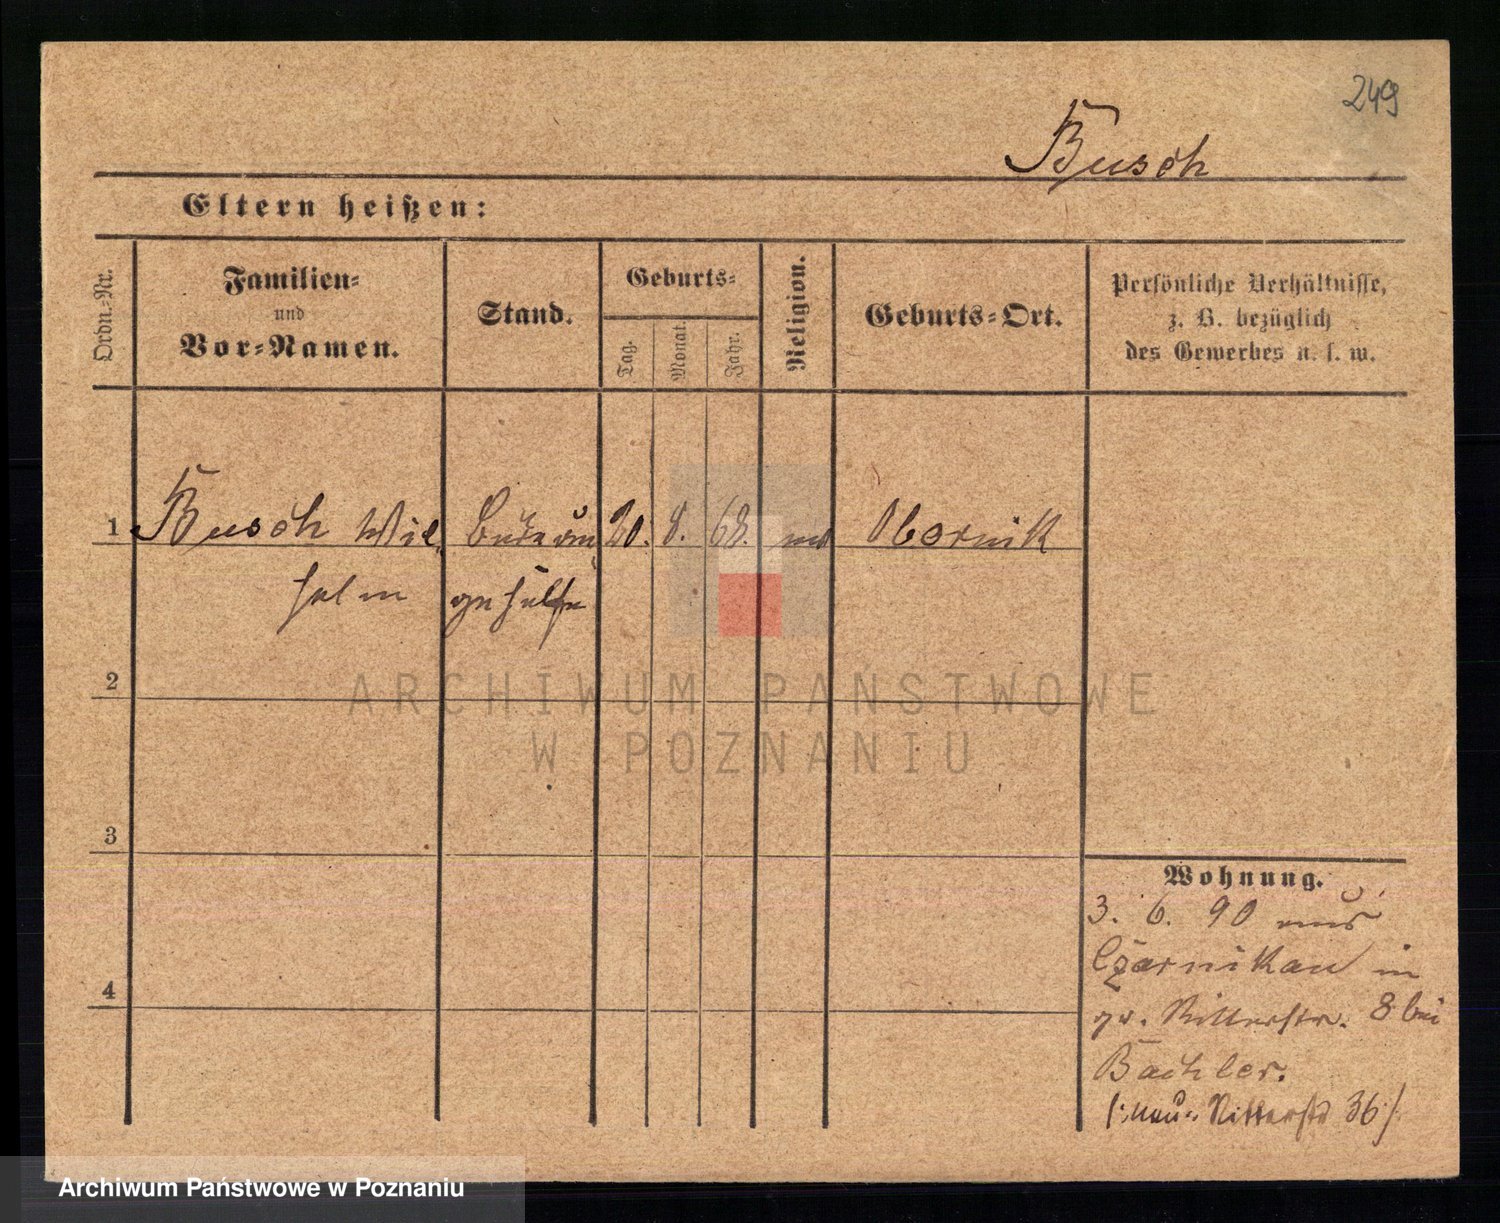 249
Busch
Eltern heißen:
Ordn.-Nr.
Familien-
und
Vor-Namen.
Stand.
Geburts-
Tag.
Monat.
Jahr.
Religion.
Geburts-Ort.
Persönliche Verhältnisse,
z. B. bezüglich
des Gewerbes u. s. w.
1 Busch Wil- 20. 8. 68. Obornik
helm gehülfe
2
3
4
ARCHIWUM PAŃSTWOWE
W POZNANIU
Wohnung.
3. 6. 90 aus
Czarnikau in
gr. Ritterstr. 8 bei
Bachler.
(: neu: Ritterstr 36 :)
Archiwum Państwowe w Poznaniu